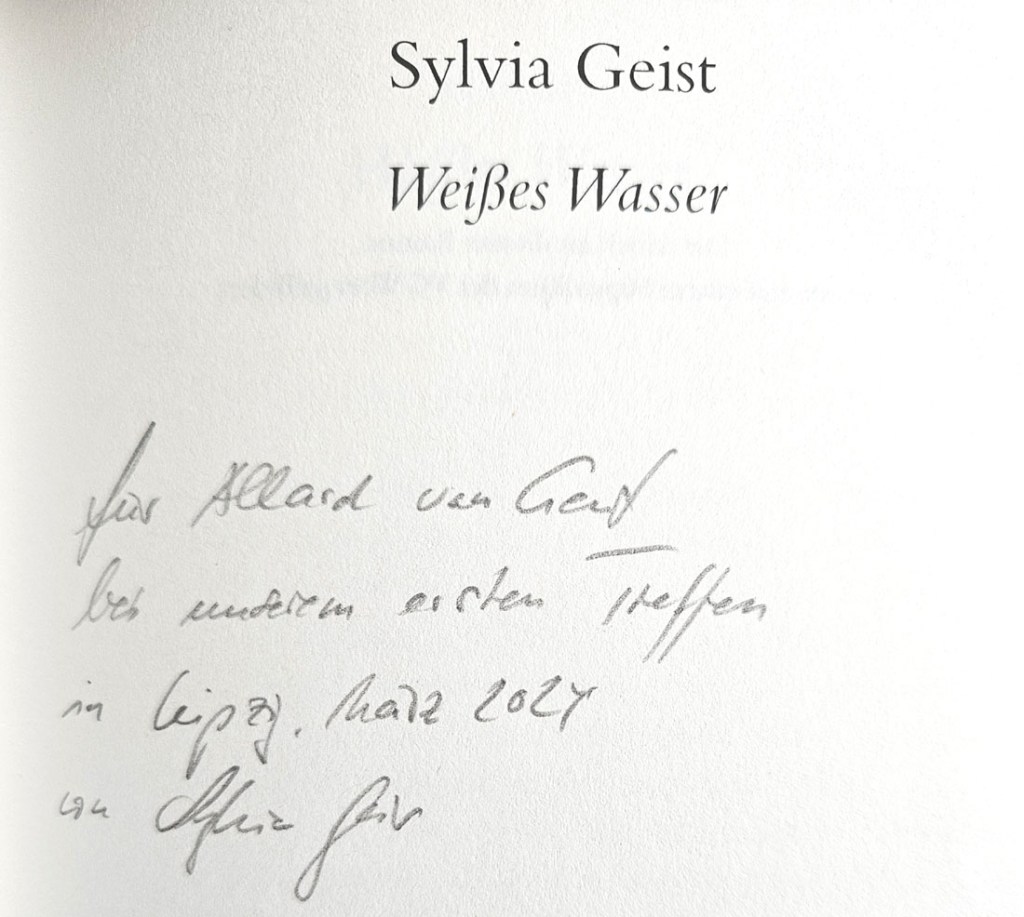 Sylvia Geist
Weißes Wasser
für Allard van Gent
bei unserem ersten Treffen
in Leipzig, März 2024
von Sylvia Geist